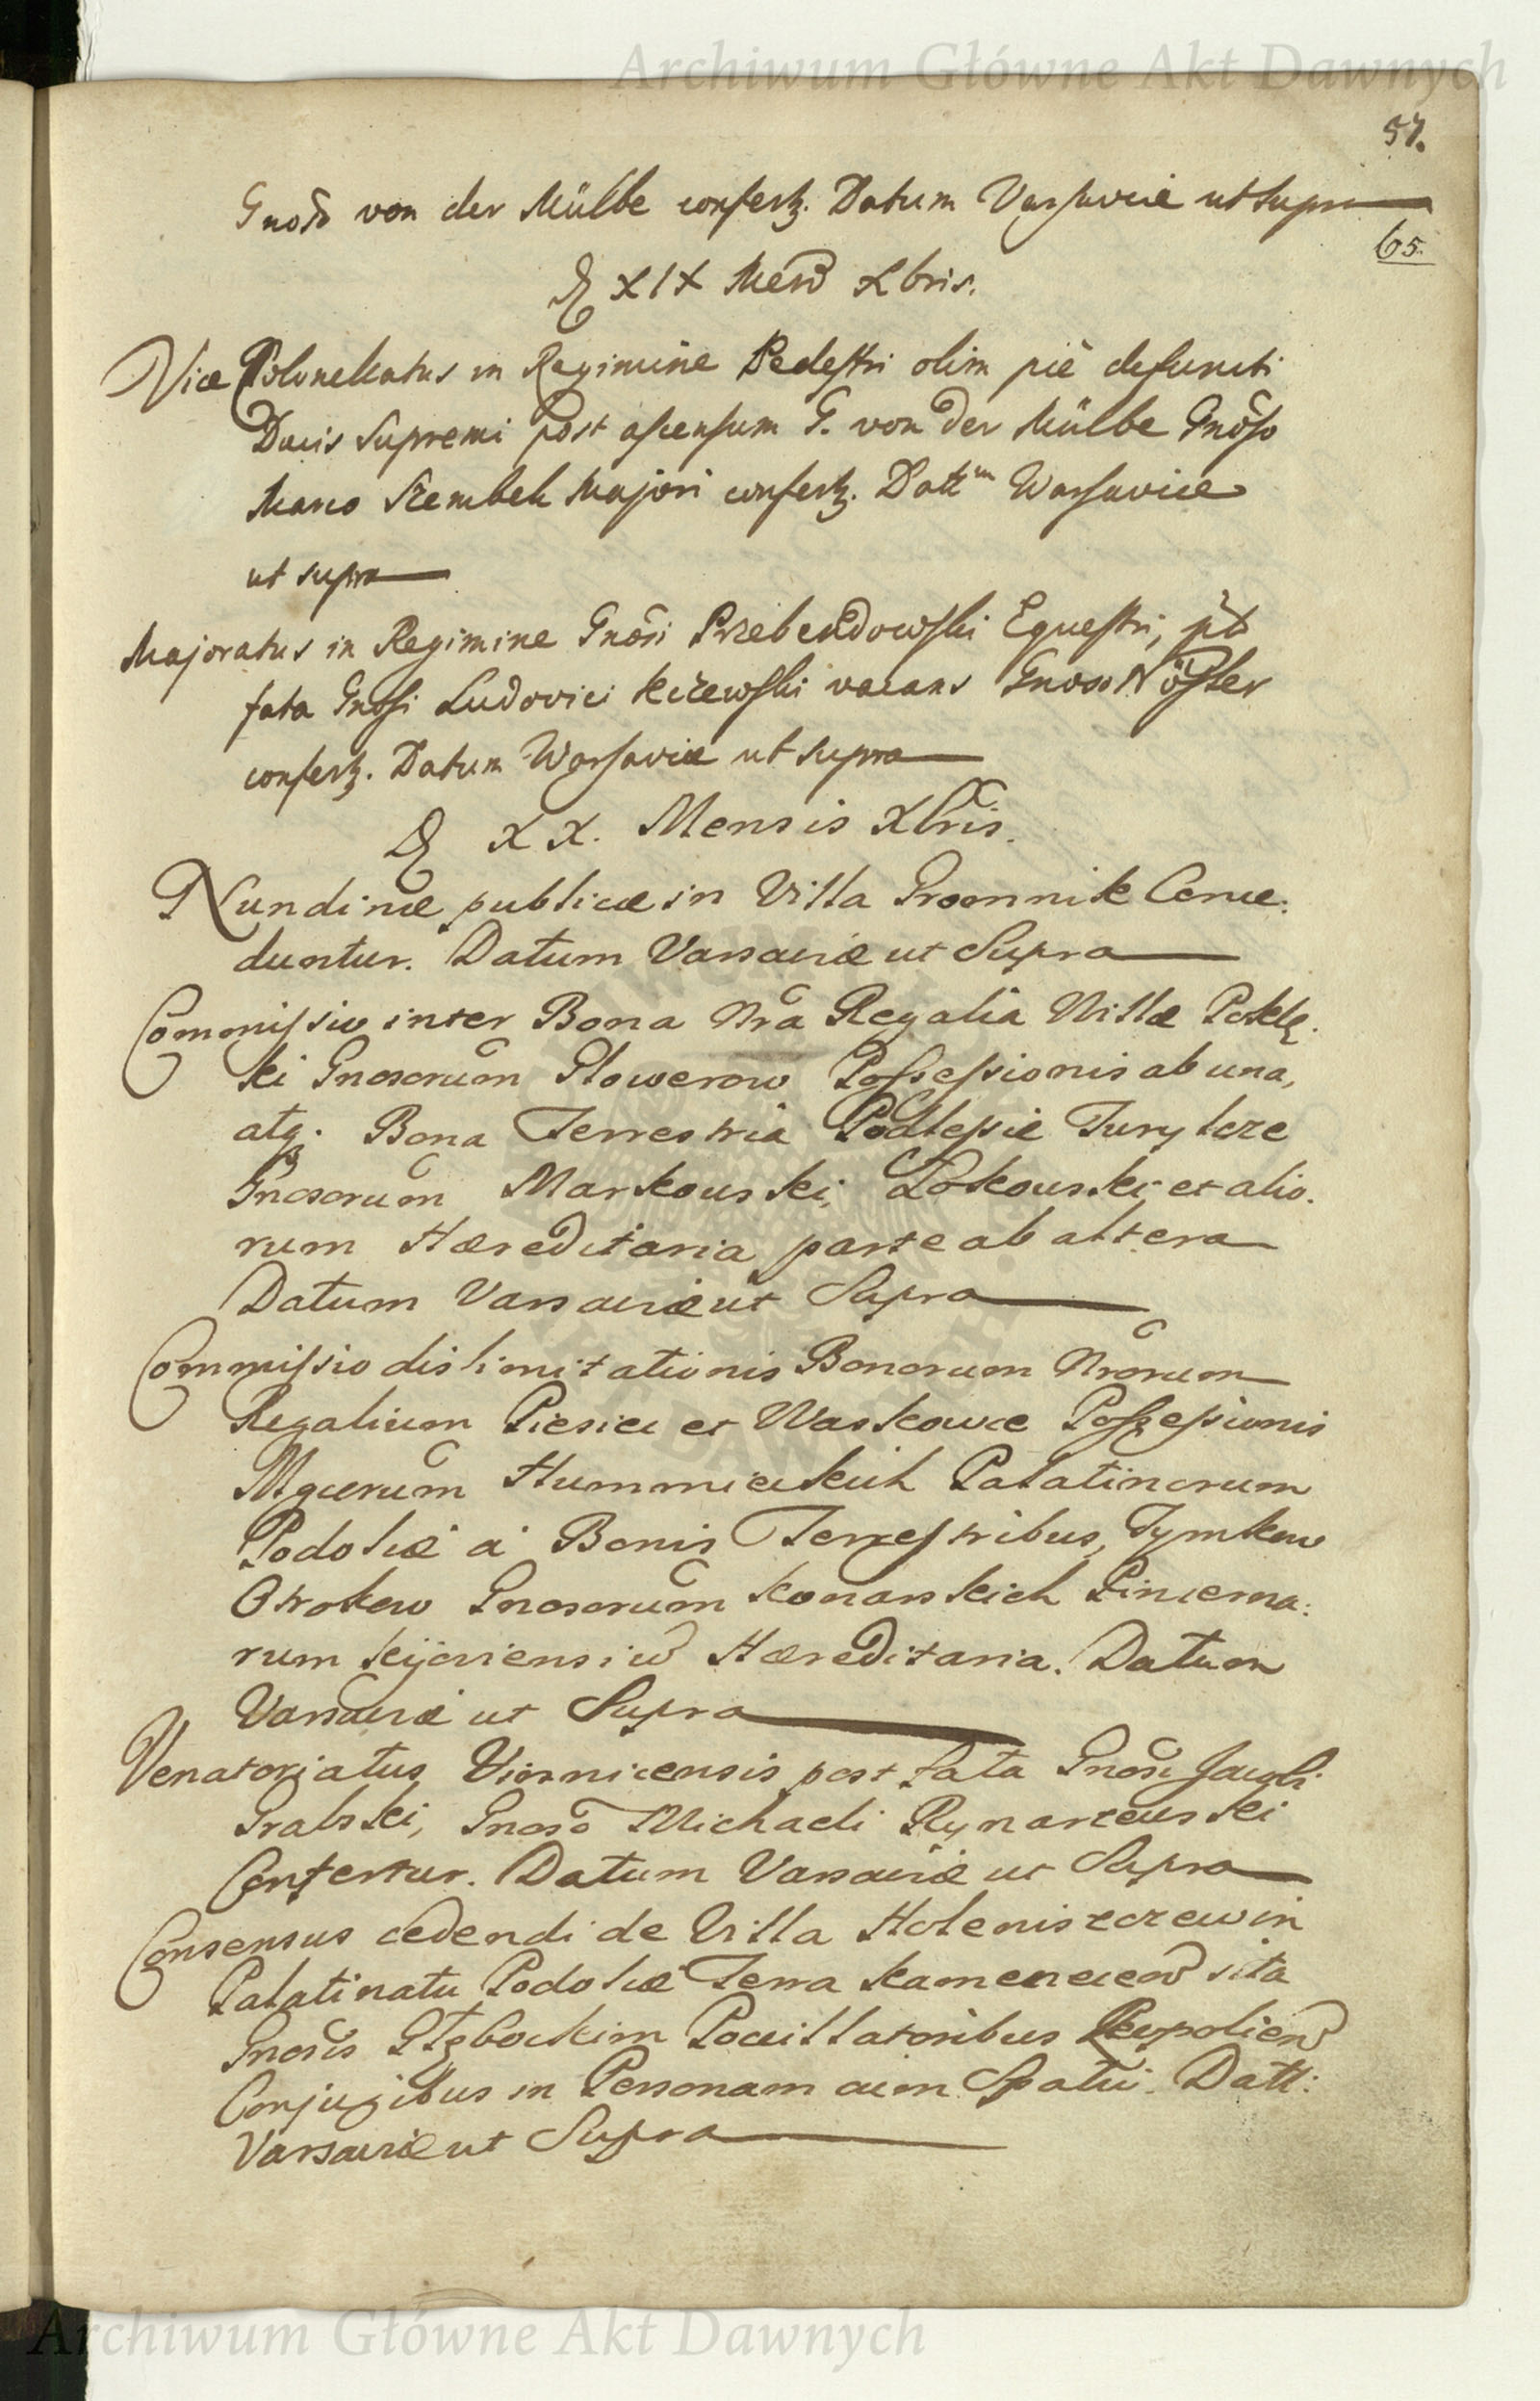 Archiwum Główne Akt Dawnych
57.
Gnoso von der Mülbe confertz. Datum Varsaviæ ut supra
65
D XIX Mens Xbris.
Vice Colonellatus in Regimine Pedestri olim piè defuncti
Ducis Supremi post ascensum G. von der Mülbe Gnoso
Marco Szembek Majori confertz. Datt͠m Warsaviæ
ut supra
Majoratus in Regimine Gnosi Przebendowski Equestri, pt
fata Gnosi Ludovici Kczewski vacans Gnoso Nöster
confertz. Datum Warsaviæ ut supra
D XX. Mensis Xbris.
Nundinæ publicæ in Villa Gromnik Conce:
duntur. Datum Varsaviæ ut Supra
Commissio inter Bona Nra Regalia Villæ Poklę.
ki Gnosorum Glowerow Possessionis ab una,
atq. Bona Terrestria Podlesie Jurylcze
Gnosorum Markouski, Lokouski et alio.
rum Hæreditaria parte ab altera
Datum Varsaviæ ut Supra
Commissio dislimitationis Bonorum Nrorum
Regalium Piesiec et Waskowce Possessionis
Mgcorum Hummieckich Palatinorum
Podoliæ a Bonis Terrestribus, Tymkow
Otrokow Gnosorum Konarskich Pincerna:
rum Kijoviensiu Hæreditaria. Datum
Varsaviæ ut Supra
Venatoriatus Vinnicensis post fata Gnosi Jacobi
Grabski, Gnoso Michaeli Rynarzeuski
Confertur. Datum Varsaviæ ut Supra
Consensus cedendi de Villa Holeniszczew in
Palatinatu Podoliæ Terra Kamenecen sita
Gnosis Głębockim Pocillatoribus
Conjugibus in Personam Datt:
Varsaviæ ut Supra
Archiwum Główne Akt Dawnych